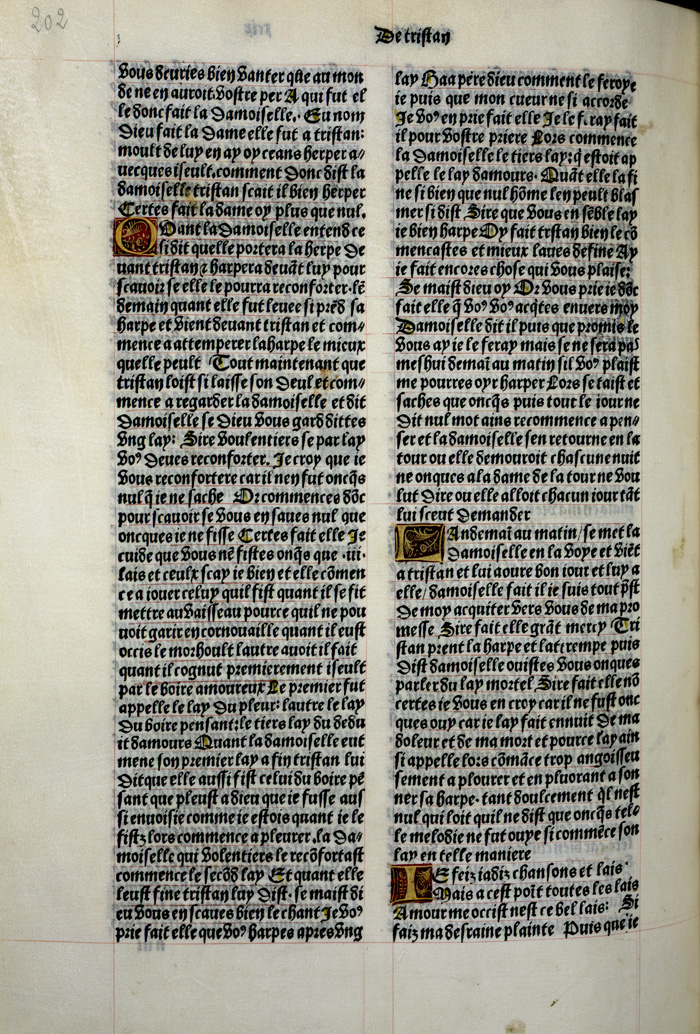 202
De tristan
vous deuries bien vanter que au mon
de ne en auroit. Vostre per A qui fut el
le donc fait la damoiselle. Eu nom
dieu fait la dame elle fut a tristan:
moult de luy en ay oy ceans herper a/
uecques iseult. comment donc dist la
damoiselle tristan scait il bien herper
Certes fait la dame oy plus que nul.
QUant la damoiselle entend ce
si dit quelle portera la herpe de
uant tristan ⁊ harpera deuāt luy pour
scauoir se elle le pourra reconforter. lē
demain quant elle fut leuee si prēd sa
harpe et vient deuant tristan et com/
mence a attemperer la harpe le mieux
quelle peult Tout maintenant que
tristan loist si laisse son deul et com/
mence a regarder la damoiselle et dit
Damoiselle se dieu vous gard dittes
vng lay: Sire voulentiers se par lay
voꝰ deues reconforter. Je croy que ie
vous reconfortere car il nen fut oncq̄s
nul q̄ ie ne sache Or commences dōc
pour scauoir se vous en saues nul que
oncques ie ne fisse Certes fait elle Je
cuide que vous nē fistes onq̄s que .iii.
lais et ceulx scay ie bien et elle cōmen
ce a iouer celuy quil fist quant il se fit
mettre au vaisseau pource quil ne pou
uoit garir en cornouaille quant il eust
occis le morhoult lautre auoit il fait
quant il cognut premierement iseult
par le boire amoureux Le premier fut
appelle le lay du pleur: lautre le lay
du boire pensant: le tiers lay du dedu
it damours Quant la damoiselle eut
mene son premier lay a fin tristan lui
dit que elle aussi fist celui du boire pē
sant que pleust a dieu que ie fusse aus
si enuoisie comme ie estois quant ie le
fistz lors commence a pleurer. la da/
moiselle qui volentiers le recōfortast
commence le secōd lay Et quant elle
leust fine tristan luy dist. se maist di
eu vous en scaues bien le chant Je voꝰ
prie fait elle que voꝰ harpes apres vng
lay Haa pere dieu comment le feroye
ie puis que mon cueur ne si accorde
Je voꝰ en prie fait elle Je le f. ray fait
il pour vostre priere Lors commence
la damoiselle le tiers lay: q̄ estoit ap
pelle le lay damours. Quāt elle la fi
ne si bien que nul hōme len peult blas
mer si dist Sire que vous en sēble lay
ie bien harpe Oy fait trstan bien le cō
mencastes et mieux laues define Ay
ie fait encores chose qui vous plaise:
Se maist dieu oy Or vous prie ie dōc
fait elle q̄ voꝰ voꝰ acq̄tes enuers moy
Damoiselle dit il puis que promis le
vous ay ie le feray mais se ne sera pas
meshui demaī au matin sil voꝰ plaist
me pourres oyr harper Lors se taist et
saches que oncq̄s puis tout le iour ne
dit nul mot ains recommence a pen/
ser et la damoiselle sen retourne en la
tour ou elle demouroit chascune nuit
ne onques a la dame de la tour ne vou
lut dire ou elle alloit chacun iour tāt
lui sceut demander
LAndemaī au matin/ se met la
damoiselle en la voye et viēt
a tristan et lui aoure bon iour et luy a
elle/ damoiselle fait il ie suis tout p̄st
de moy acquiter vers vous de ma pro
messe Sire fait elle grāt mercy Tri
stan prent la harpe et latrempe puis
dist damoiselle ouistes vous onques
parler du lay mortel Sire fait elle nō
certes ie vous en croy car il ne fust onc
ques ouy car ie lay fait ennuit de ma
doleur et de ma mort et pource lay ain
si appelle lors cōmāce trop angoisseu
sement a plourer et en pluorant a son
ner sa harpe. tant doulcement q̄l nest
nul qui loit quil ne dist que oncq̄s tel/
le melodie ne fut ouye si commēce son
lay en telle maniere
IE feiz iadiz chansons et lais
Mais a cest poīt toutes les lais
Amour me occist nest ce bel lais: Si
faiz ma desraine plainte Puis que ie